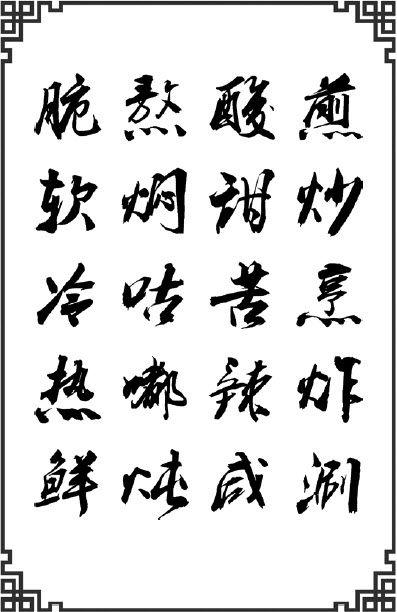 煎炒烹炸涮
酸甜苦辣咸
熬焖咕嘟炖
脆软冷热鲜